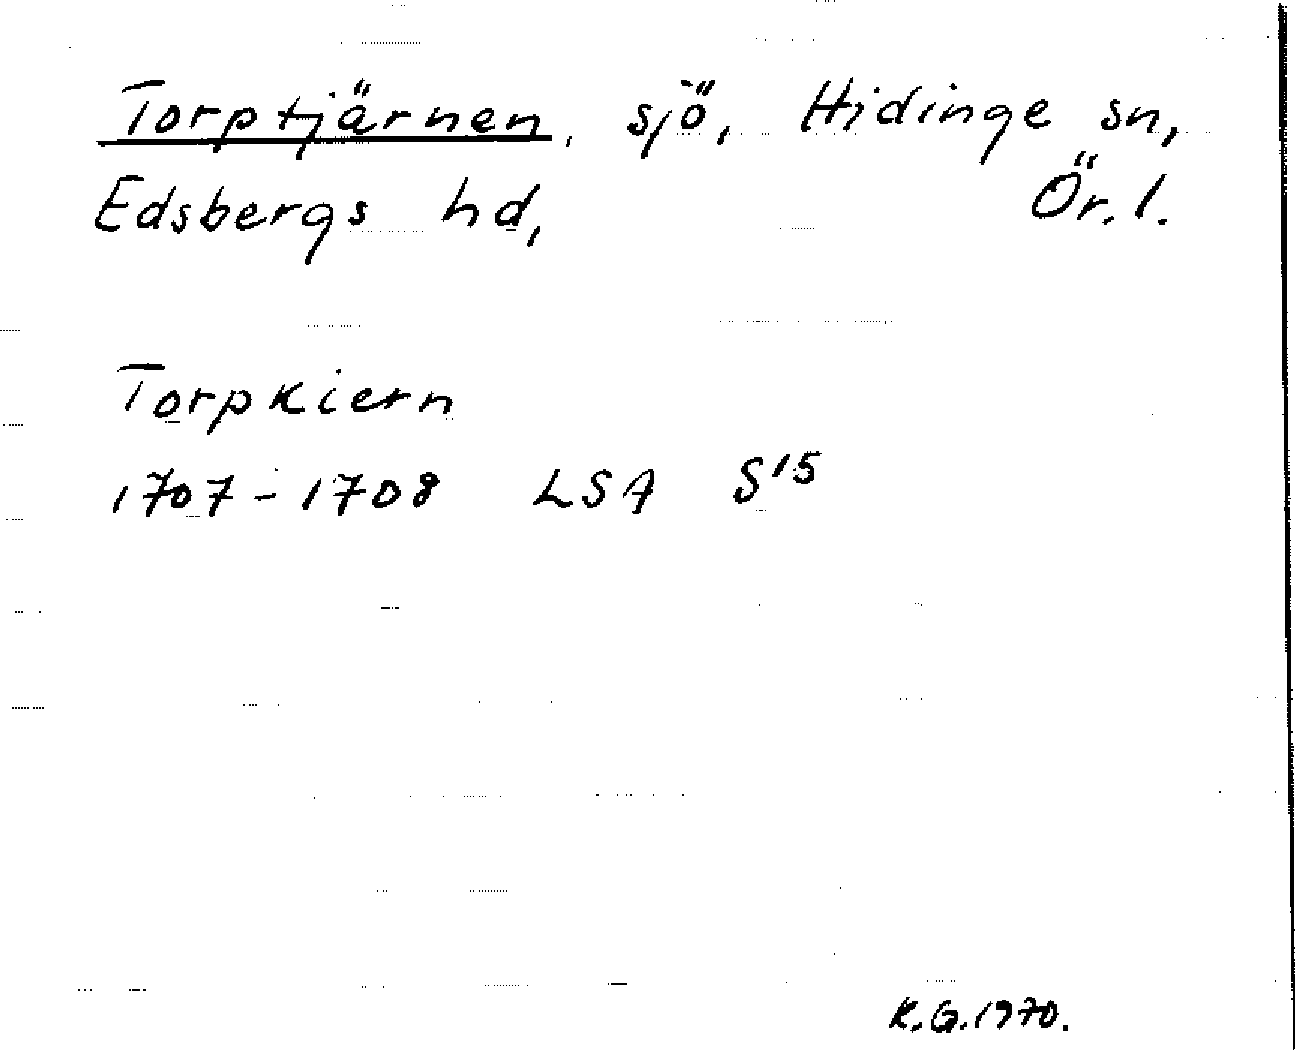 Torptjärnen, sjö, Hidinge sn,
Edsbergs hd, Ör. l.
Torpkiern
1707-1708 LSA S¹⁵
K.G. 1970.